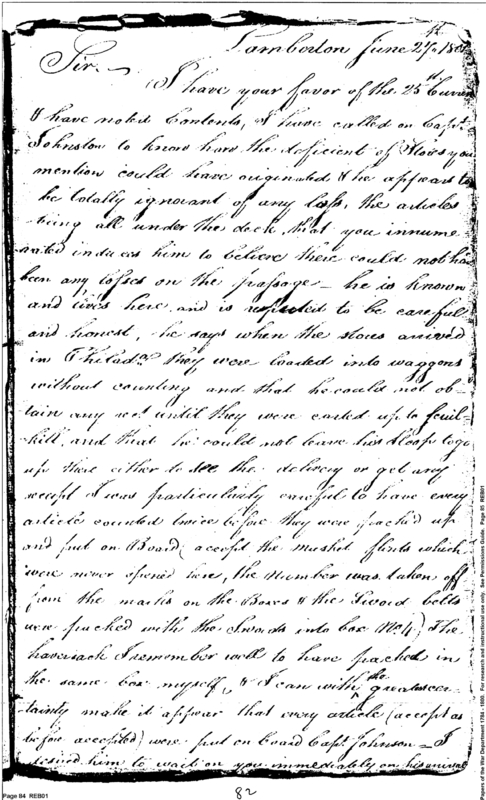 Lamberton June 27th 180
Sir.
I have your favor of the 25st Curren
& have noted Contents, I have called on Capt.
Johnston to know how the deficient of Stores you
mention could have originated & he appears to
be totally ignorant of any loss, the articles
being all under the deck, that you innume
rated induces him to believe there could not ha
been any losses on the passage – he is known
and lives here and is reputed to be careful
and honest, he says when the stores arrived
in Philada. they were loaded into waggons
without counting and that he could not ob-
tain any rect. until they were carted up to
kill, and that he could not leave his Sloop to go
up there either to see the delivery or get any
receipt I was particularly careful to have every
article counted twice before they were packed up
and put on Board (accept the musket flints which
were never opened here, the Number was taken off
from the marks on the Boxes & the Sword belts
were packed with the Swords into box No 4) The
haversack I remember well to have packed in
the same box myself, & I can with the greatest cer-
tainty make it appear that every article (accept as
before accepted) were put on board Capt. Johnson – I
desired him to wait on you immediately on his arrival
82
Page 84 REB01
Papers of the War Department 1784 - 1800. For research and instructional use only. See Permissions Guide. Page 85 REB01